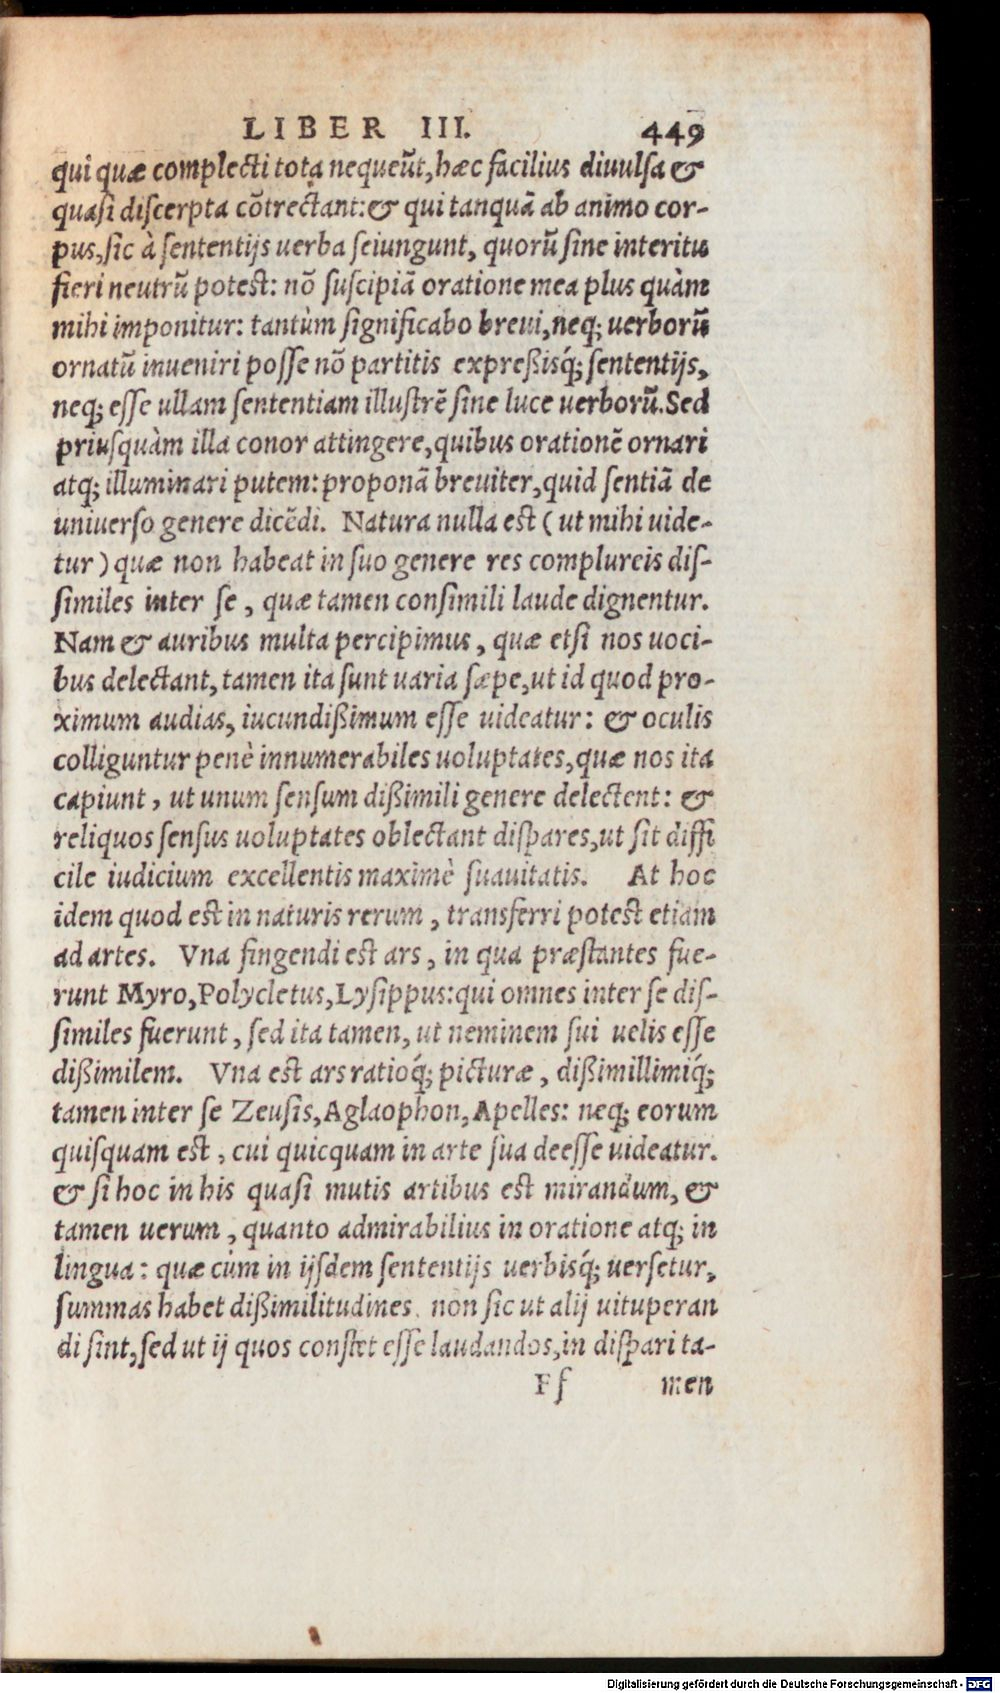 LIBER III. 449
qui quæ complecti tota nequeũt, hæc facilius diuulsa &
quasi discerpta cõtrectant: & qui tanquã ab animo cor-
pus, sic à sententijs uerba seiungunt, quorũ sine interitu
fieri neutrũ potest: nõ suscipiã oratione mea plus quàm
mihi imponitur: tantùm significabo breui, neq; uerborũ
ornatũ inueniri posse nõ partitis expreßisq́; sententijs,
neq; esse ullam sententiam illustrẽ sine luce uerborũ. Sed
priusquàm illa conor attingere, quibus orationẽ ornari
atq; illuminari putem: proponã breuiter, quid sentiã de
uniuerso genere dicẽdi. Natura nulla est ( ut mihi uide-
tur ) quæ non habeat in suo genere res complureis dis-
similes inter se, quæ tamen consimili laude dignentur.
Nam & auribus multa percipimus, quæ etsi nos uoci-
bus delectant, tamen ita sunt uaria sæpe, ut id quod pro-
ximum audias, iucundißimum esse uideatur: & oculis
colliguntur penè innumerabiles uoluptates, quæ nos ita
capiunt, ut unum sensum dißimili genere delectent: &
reliquos sensus uoluptates oblectant dispares, ut sit diffi
cile iudicium excellentis maximè suauitatis. At hoc
idem quod est in naturis rerum, transferri potest etiam
ad artes. Vna fingendi est ars, in qua præstantes fue-
runt Myro, Polycletus, Lysippus: qui omnes inter se dis-
similes fuerunt, sed ita tamen, ut neminem sui uelis esse
dißimilem. Vna est ars ratioq́; picturæ, dißimillimiq́;
tamen inter se Zeusis, Aglaophon, Apelles: neq; eorum
quisquam est, cui quicquam in arte sua deesse uideatur.
& si hoc in his quasi mutis artibus est mirandum, &
tamen uerum, quanto admirabilius in oratione atq; in
lingua: quæ cùm in ijsdem sententijs uerbisq́; uersetur,
summas habet dißimilitudines. non sic ut alij uituperan
di sint, sed ut ij quos constet esse laudandos, in dispari ta-
Ff men
Digitalisierung gefördert durch die Deutsche Forschungsgemeinschaft - DFG